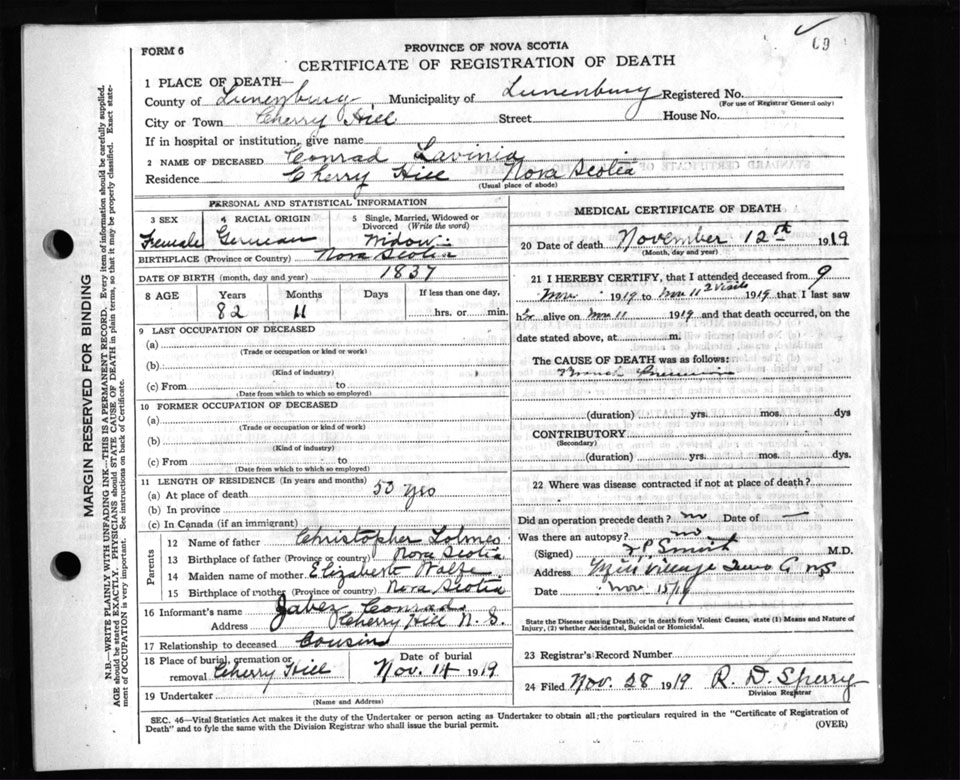 69
FORM 6
PROVINCE OF NOVA SCOTIA
CERTIFICATE OF REGISTRATION OF DEATH
1 PLACE OF DEATH—
County of Lunenburg, Municipality of Lunenburg Registered No.
(For use of Registrar General only)
City or Town Cherry Hill Street House No.
If in hospital or institution, give name
2 NAME OF DECEASED Conrad Lavinia
Residence Cherry Hill Nova Scotia
(Usual place of abode)
PERSONAL AND STATISTICAL INFORMATION
3 SEX 4 RACIAL ORIGIN 5 Single, Married, Widowed or Divorced (Write the word)
Female German Widow
BIRTHPLACE (Province or Country) Nova Scotia
DATE OF BIRTH (month, day and year) 1837
8 AGE Years Months Days If less than one day,
82 11 hrs. or min.
9 LAST OCCUPATION OF DECEASED
(a)
(Trade or occupation or kind of work)
(b)
(Kind of industry)
(c) From to
(Date from which to which so employed)
10 FORMER OCCUPATION OF DECEASED
(a)
(Trade or occupation or kind of work)
(b)
(Kind of industry)
(c) From to
(Date from which to which so employed)
11 LENGTH OF RESIDENCE (In years and months)
(a) At place of death 50 yrs
(b) In province
(c) In Canada (if an immigrant)
Parents
12 Name of father Christopher
13 Birthplace of father (Province or country) Nova Scotia
14 Maiden name of mother Elizabeth Wolfe
15 Birthplace of mother (Province or country) Nova Scotia
16 Informant's name Jabez Conrad
Address Cherry Hill N. S.
17 Relationship to deceased Cousin
18 Place of burial, cremation or removal Cherry Hill Date of burial Nov. 14 1919
19 Undertaker
(Name and Address)
MEDICAL CERTIFICATE OF DEATH
20 Date of death November 12th 1919
(Month, day and year)
21 I HEREBY CERTIFY, that I attended deceased from 9
Nov 1919 to Nov 11 2 visits 1919 that I last saw
her alive on Nov 11 1919 and that death occurred, on the
date stated above, at m.
The CAUSE OF DEATH was as follows:
(duration) yrs. mos. dys
CONTRIBUTORY
(Secondary)
(duration) yrs. mos. dys.
22 Where was disease contracted if not at place of death?
Did an operation precede death? no Date of —
Was there an autopsy? no
(Signed) M.D.
Address Mill Village NS
Date Nov 15/19
State the Disease causing Death, or in death from Violent Causes, state (1) Means and Nature of
Injury, (2) whether Accidental, Suicidal or Homicidal.
23 Registrar's Record Number
24 Filed Nov. 28 1919 R. D. Sperry
Division Registrar
SEC. 46—Vital Statistics Act makes it the duty of the Undertaker or person acting as Undertaker to obtain all the particulars required in the "Certificate of Registration of
Death" and to fyle the same with the Division Registrar who shall issue the burial permit.
(OVER)
MARGIN RESERVED FOR BINDING
N.B.—WRITE PLAINLY WITH UNFADING INK—THIS IS A PERMANENT RECORD. Every item of information should be carefully supplied.
AGE should be stated EXACTLY. PHYSICIANS should STATE CAUSE OF DEATH in plain terms, so that it may be properly classified. Exact state-
ment of OCCUPATION is very important. See instructions on back of Certificate.